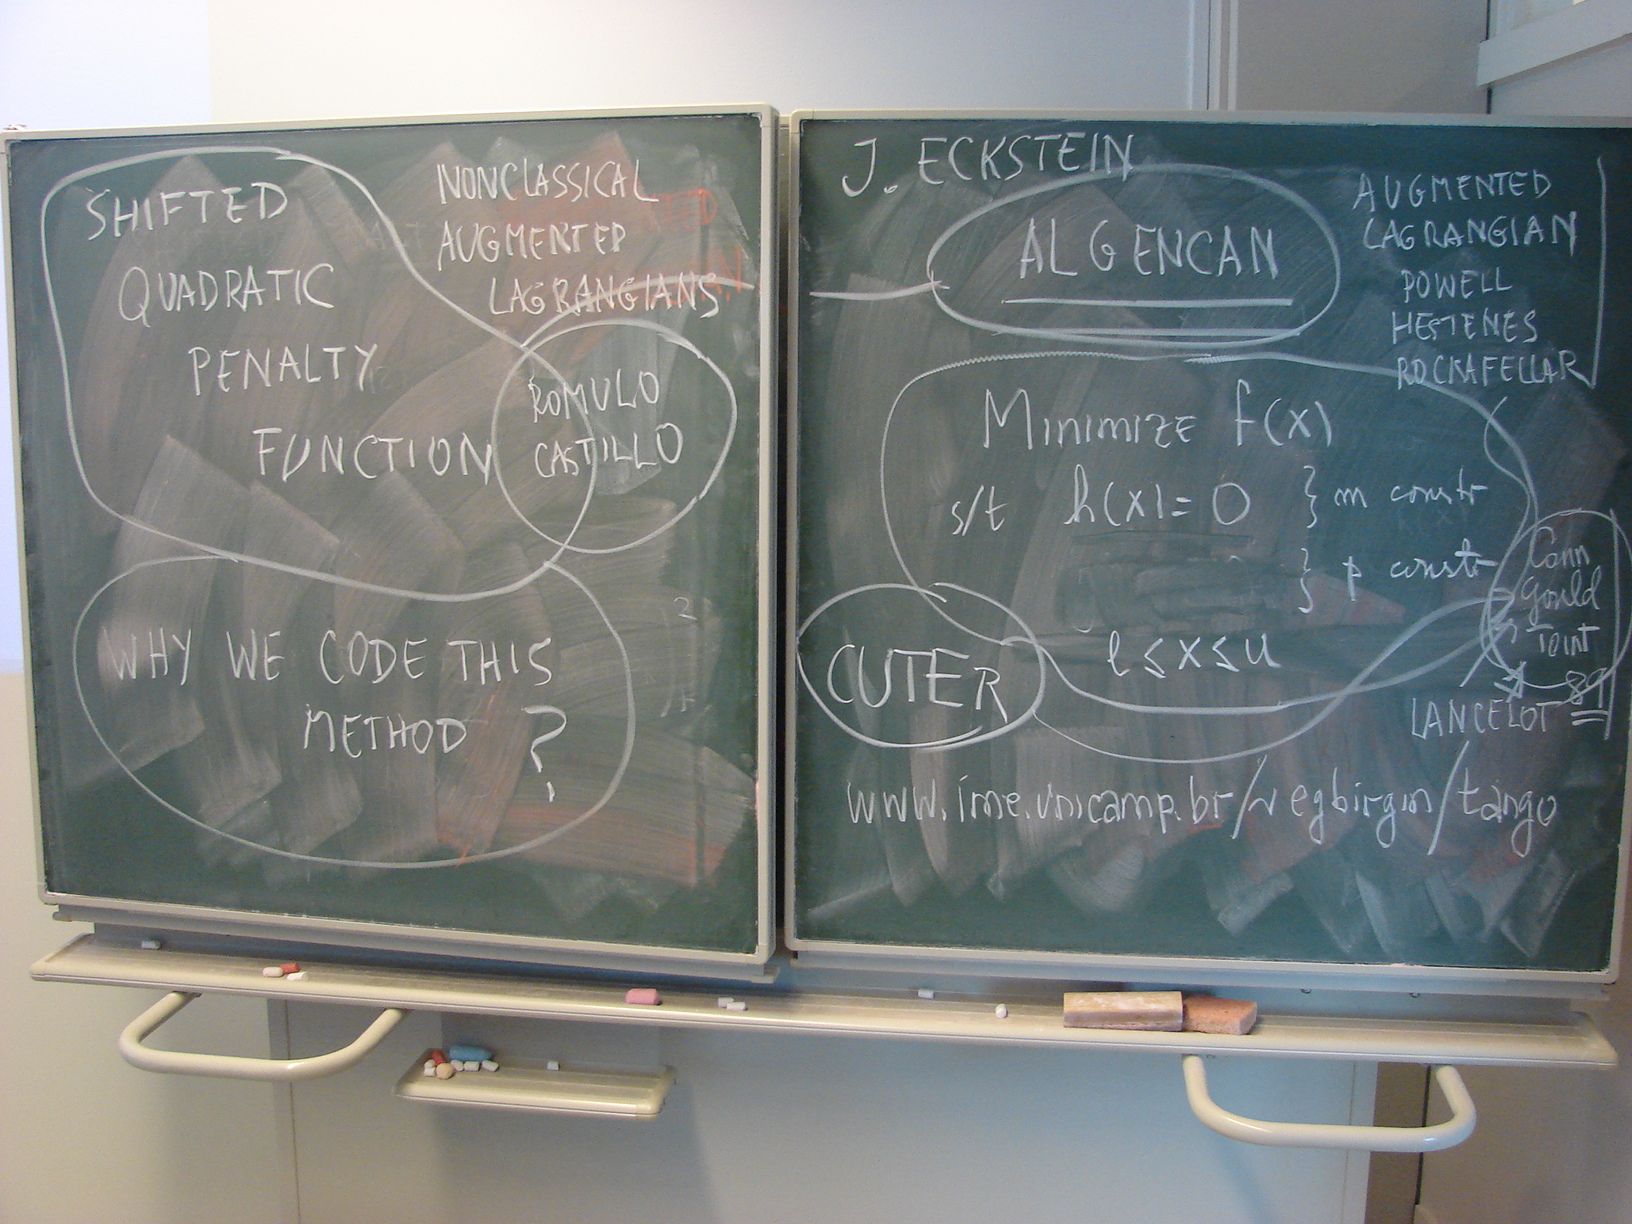 SHIFTED
QUADRATIC
PENALTY
FUNCTION
NONCLASSICAL
AUGMENTED
LAGRANGIANS
ROMULO
CASTILLO
WHY WE CODE THIS
METHOD ?
J. ECKSTEIN
ALGENCAN
AUGMENTED
LAGRANGIAN
POWELL
HESTENES
ROCKAFELLAR
Minimize f(x)
s/t h(x) = 0 } m constr
} p constr
l ≤ x ≤ u
Conn
Gould
Toint
89
LANCELOT
CUTER
www.ime.unicamp.br/~egbirgin/tango